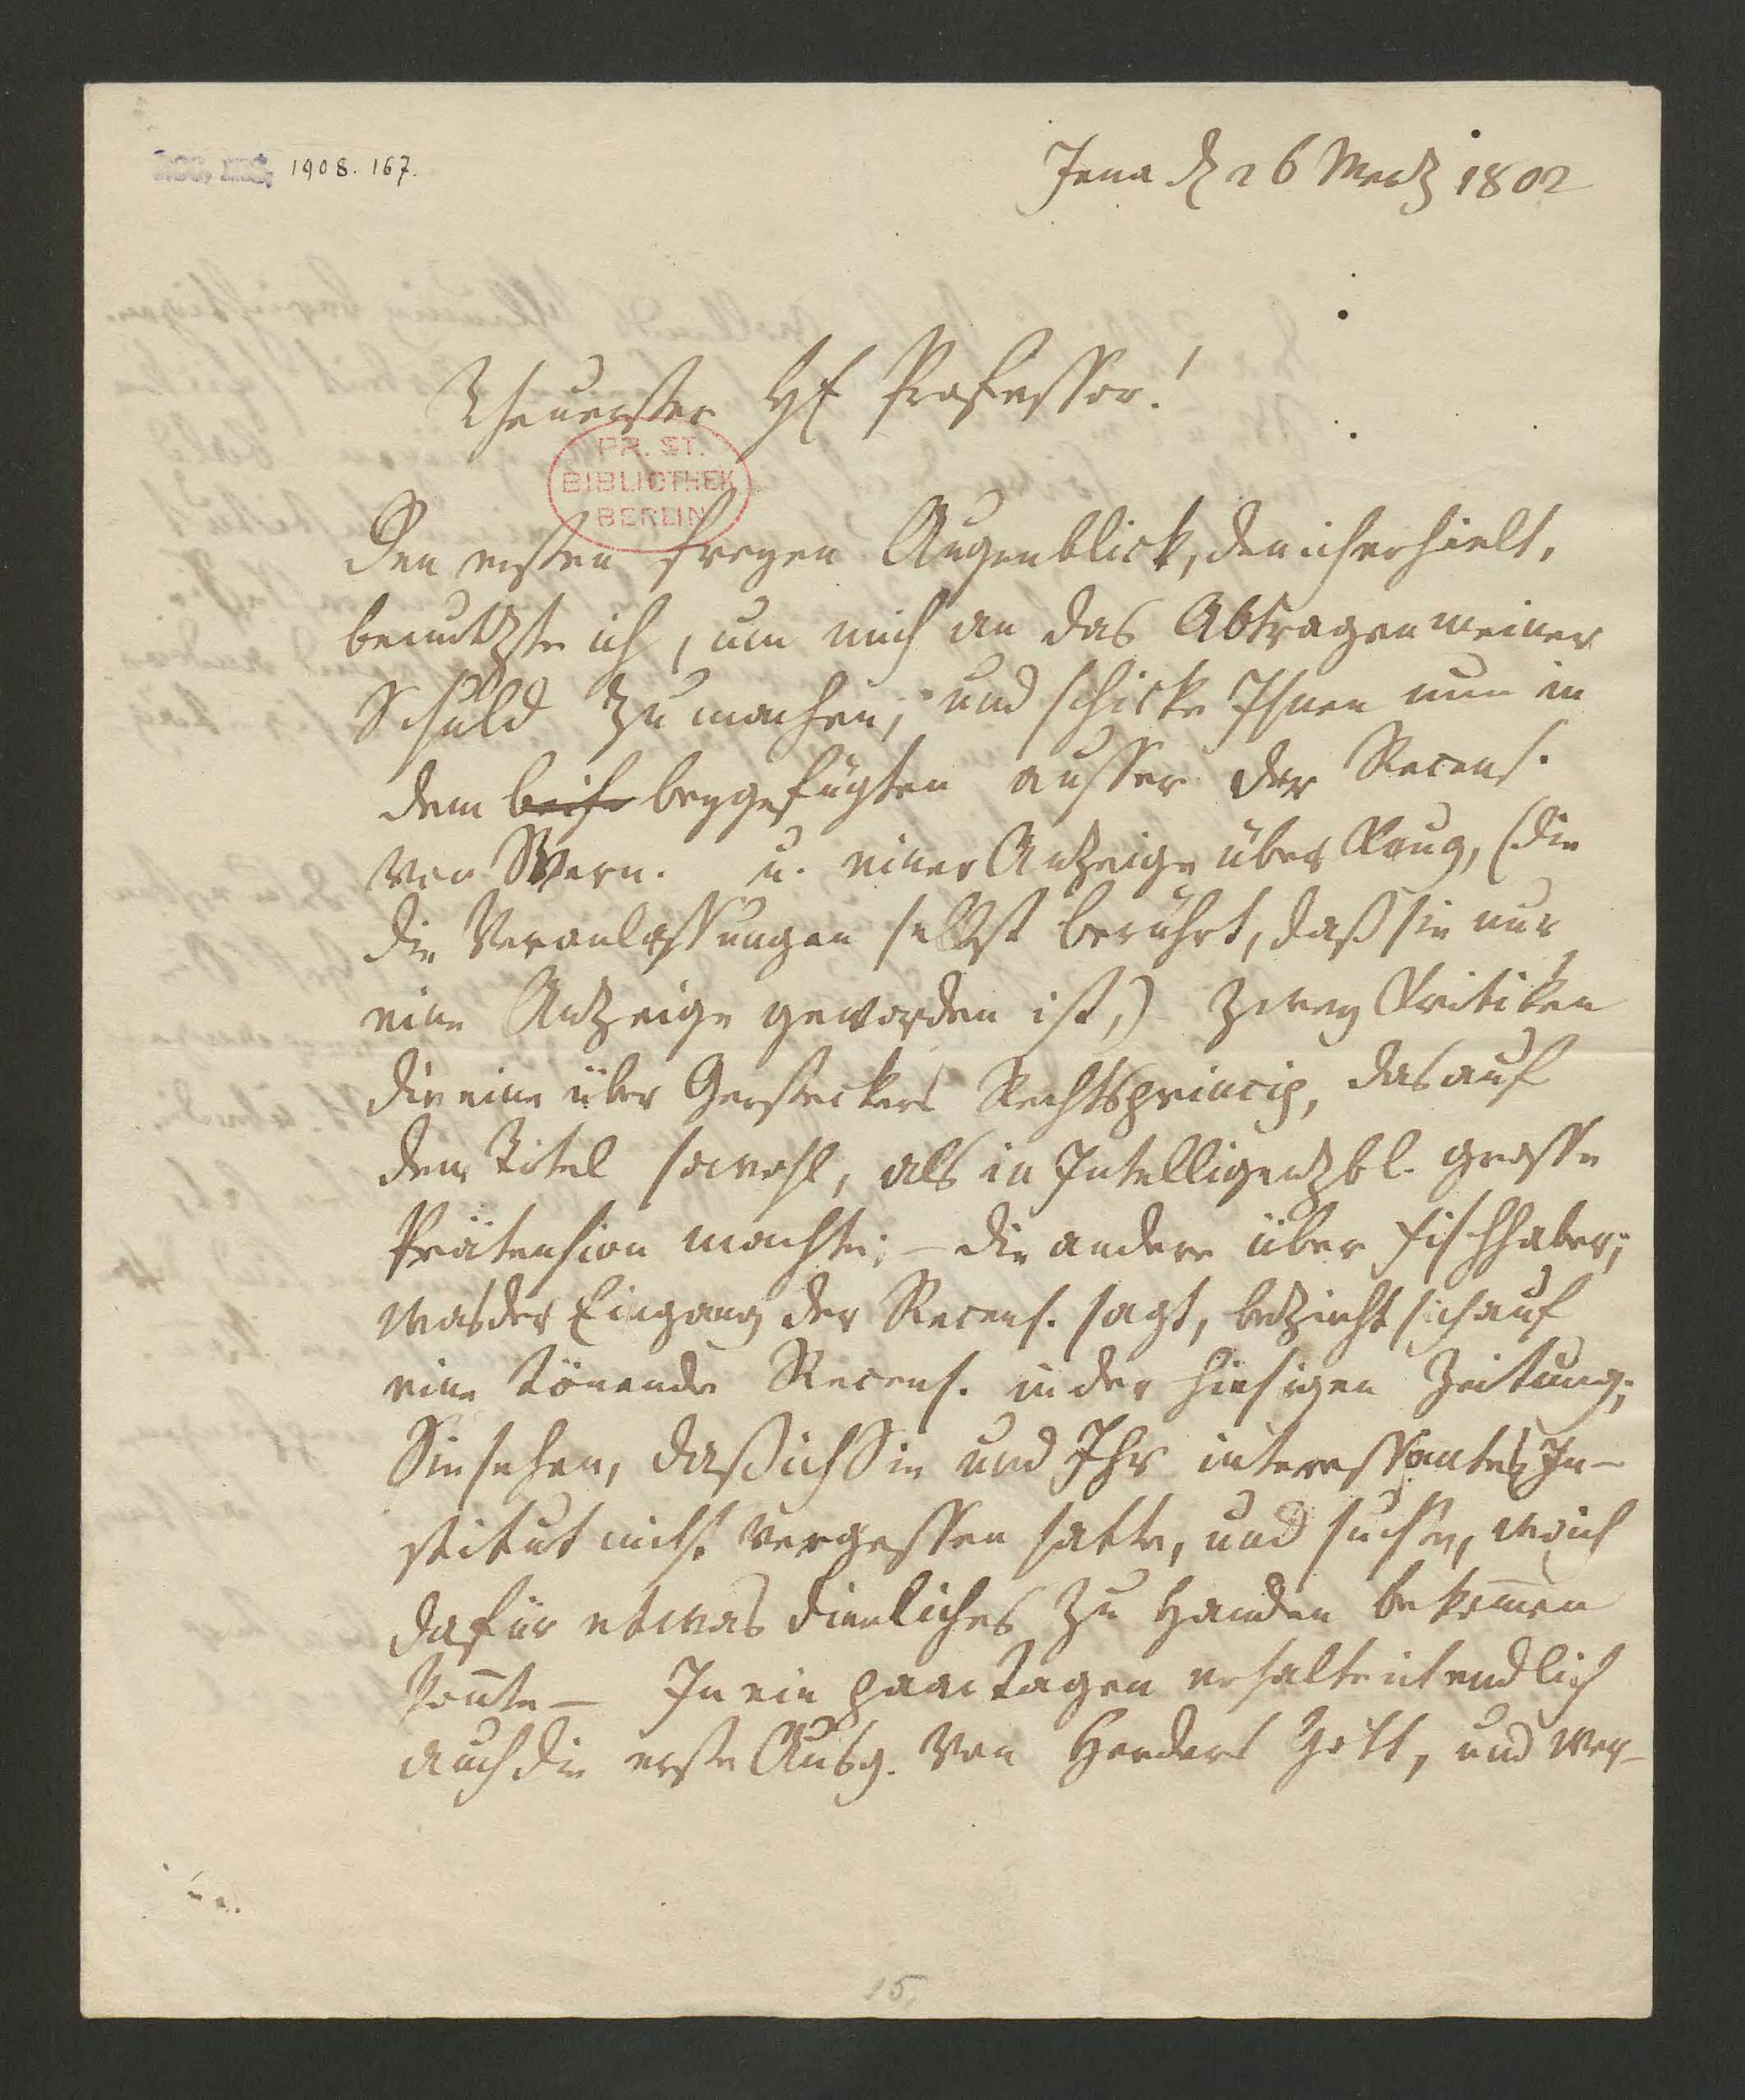 acc. ms. 1908. 167.
Jena d 26 Merz 1802
Theuerster Hr Professor!
PR. ST.
BIBLIOTHEK
BERLIN
Den ersten freyen Augenblick, den ich erhielt,
benutzte ich, um mich an das Abtragen meiner
Schuld zu machen, und schicke Ihnen nun in
dem beygefügten ausser der Recens.
von Wern. u. einer Anzeige über Krug, (die
die Veranlassungen selbst berührt, daß sie nur
eine Anzeige geworden ist,) zwey Kritiken
die eine über Gersteckers Rechtsprincip, das auf
dem Titel sowohl, als in Intelligenzbl. grosse
Prätension machte; – die andere über Fischhaber;
was der Eingang der Recens. sagt, bezieht sich auf
eine tönende Recens. in der hiesigen Zeitung;
Sie sehen, daß ich Sie und Ihr interessantes In-
stitut nicht vergessen hatte, und suche, wo ich
dafür etwas dienliches zu Handen bekommen
konnte – In ein paar Tagen erhalte ich endlich
auch die erste Ausg. von Herders Gott, und wer-
15.